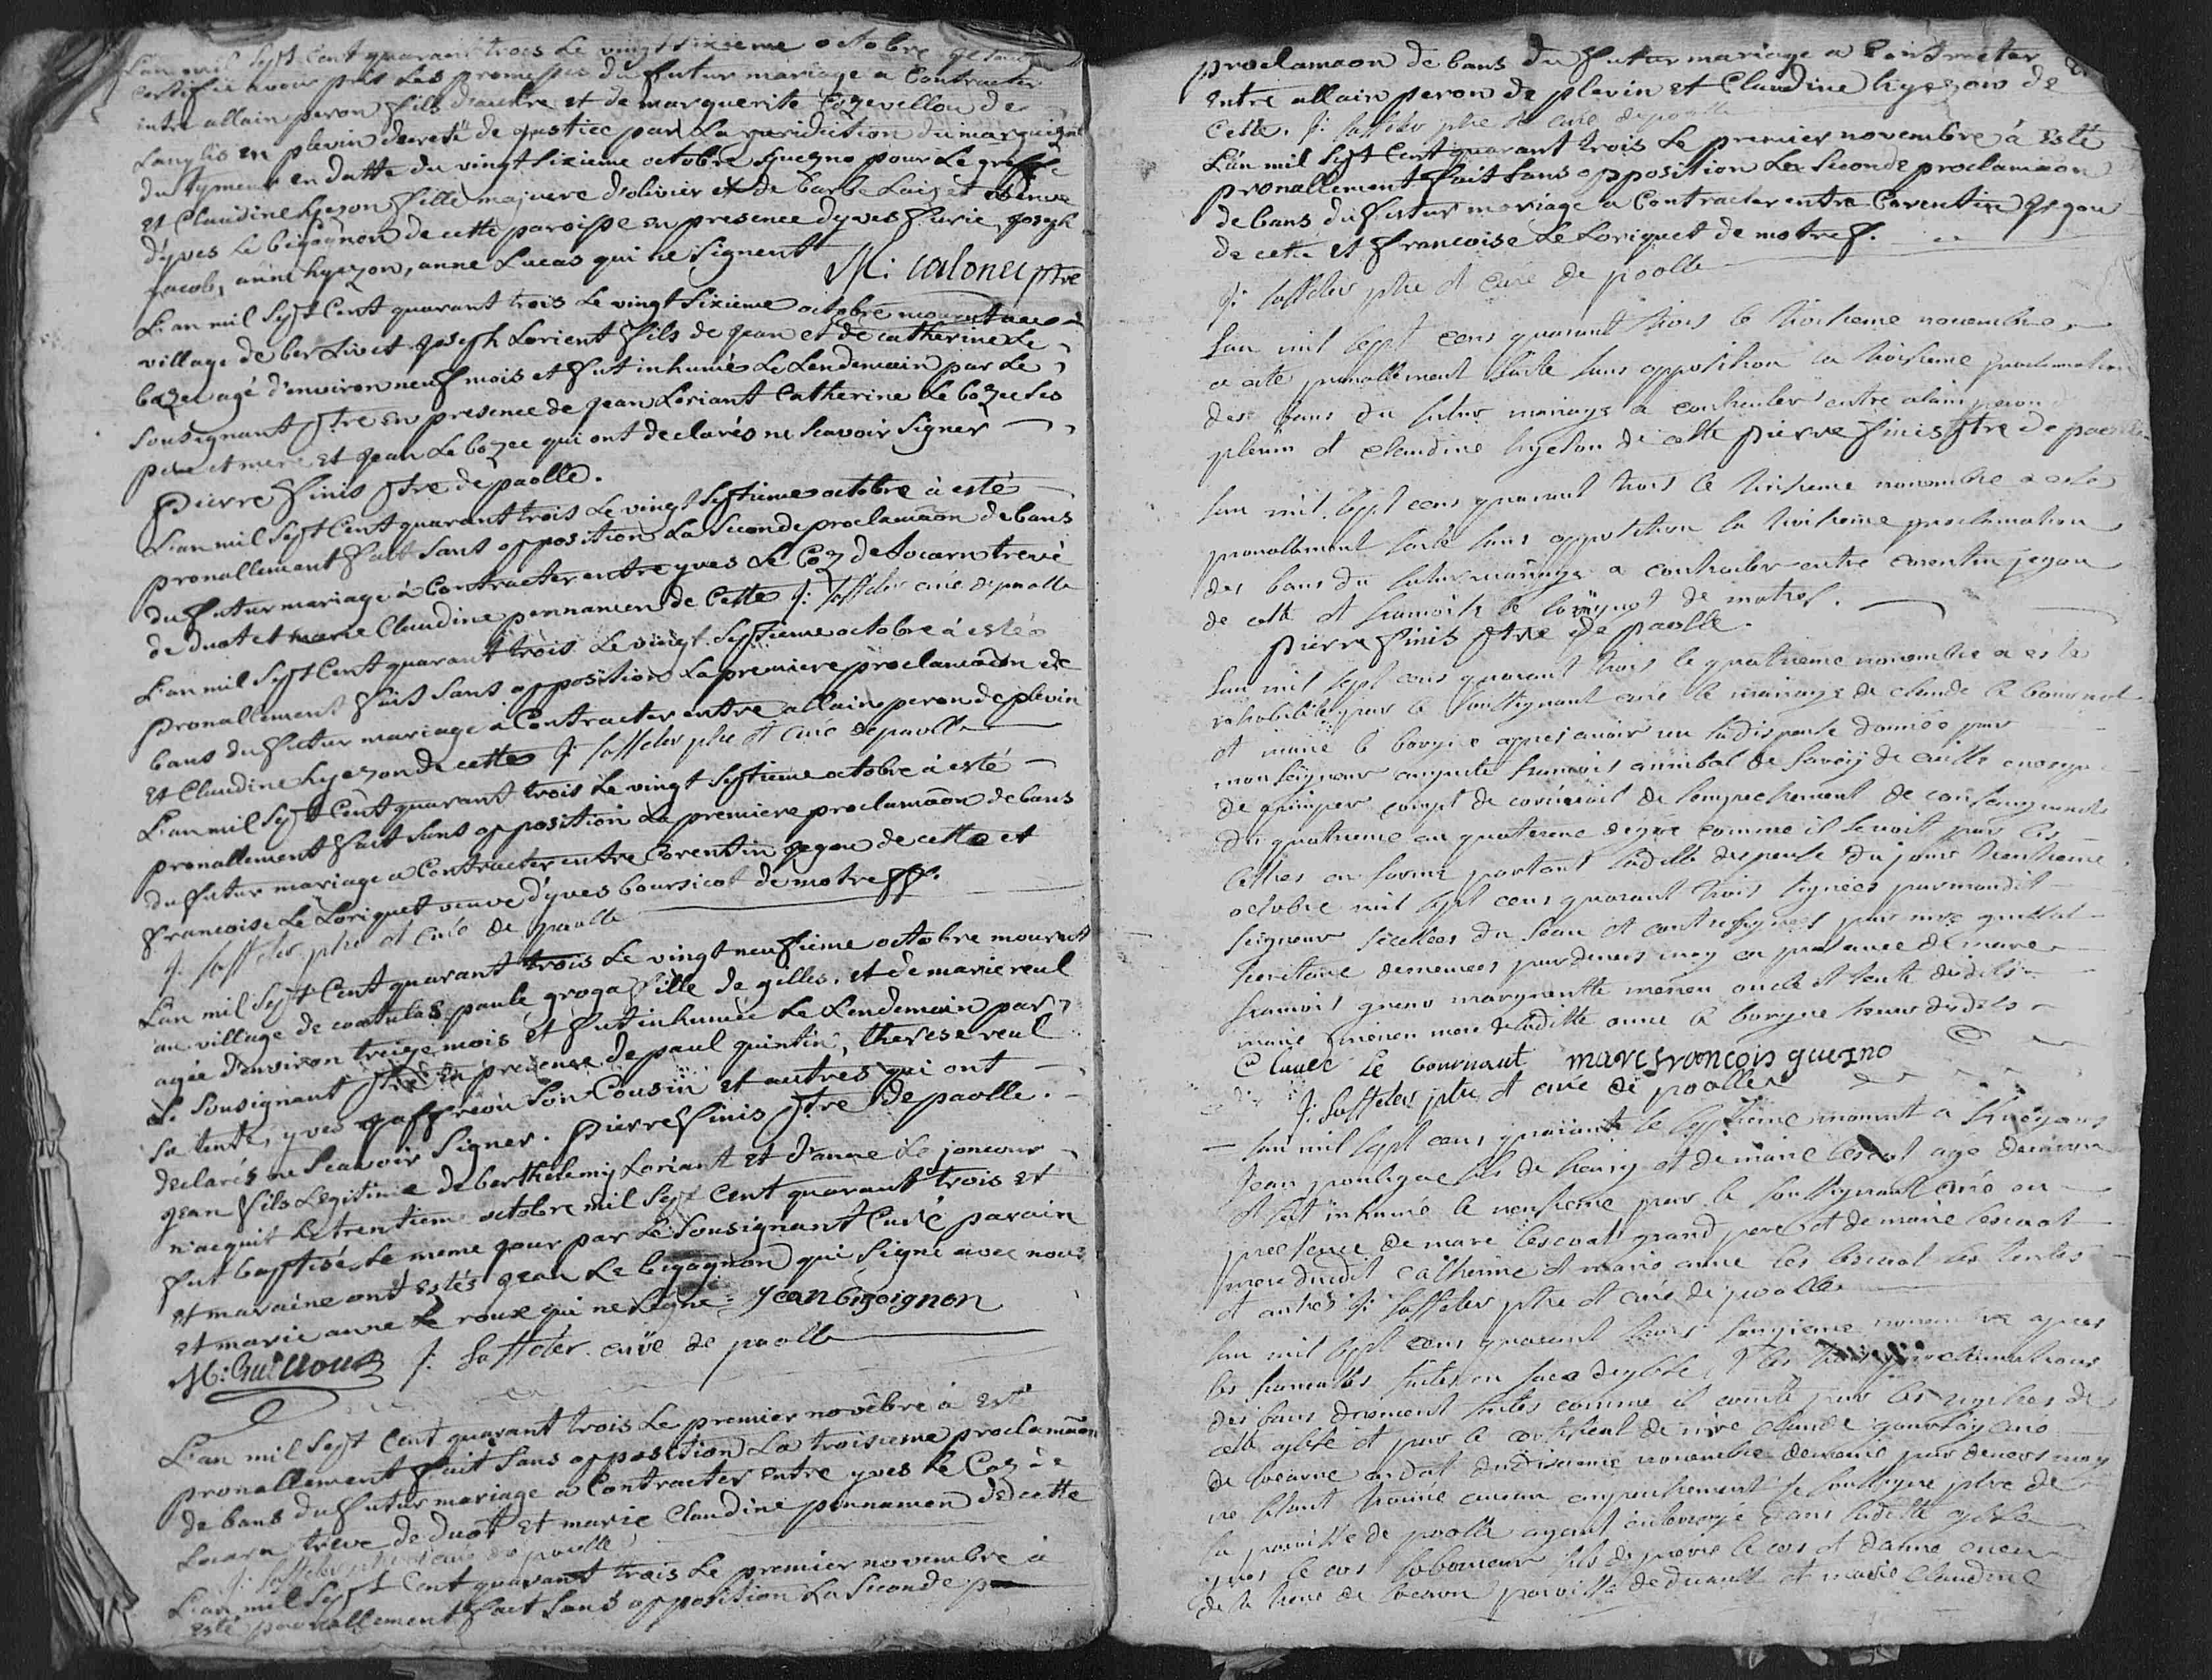 L'an mil Sept Cent quarant trois Le vingt sixieme octobre je
certifie avoir pris Les promesses du futur mariage a Contracter
entre allain peron fils d'andre et de marguerite Cozevellou de
Langlés en plevin decreté de justice par La juridiction du marquizat
du tymeur en datte du vingt sixieme octobre pour Le greffe
et Claudine fille majeure d'olivier et de barbe et veuve
d'yves Le bigognon de cette paroisse en presence d'yves joseph
jacob, anne hyezon, anne Lucas qui ne Signent M: calonec ptre
L'an mil Sept Cent quarant trois Le vingt Sixieme octobre mourut au
village de joseph Lorient fils de jean et de catherine Le
bozec agé d'environ neuf mois et fut inhumé Le Lendemain par Le
Sousignant ptre En presence de jean Loriant Catherine Le bozec Ses
pere et mere et jean Le bozec qui ont declarés ne Scavoir Signer
pierre finis ptre de paolle.
L'an mil Sept Cent quarant trois Le vingt Septieme octobre à esté
pronallement fait Sans opposition La Seconde proclamãon de bans
du futur mariage à Contracter entre yves Le Coz de Locarn treve
de duot et marie Claudine pennamen de Cette f: curé de paolle
L'an mil Sept Cent quarant trois Le vingt Septieme octobre à esté
pronallement fait Sans opposition La premiere proclamãon de
bans du futur mariage à Contracter entre allain peron de plevin
et Claudine hyezon de cette f: ptre et curé de paolle
L'an mil Sept Cent quarant trois Le vingt Septieme octobre à esté
pronallement fait Sans opposition La premiere proclamãon de bans
du futur mariage a Contracter entre Corentin jegou de cette et
francoise Le Loriquet veuve d'yves boursicot de motreff.
f: ptre et curé de paolle
L'an mil Sept Cent quarant trois Le vingt neufieme octobre mourut
au village de paule groga fille de gilles, et de marie reul
agée d'environ treize mois et fut inhumée Le Lendemain par
Le Sousignant ptre En presence de paul quintin, therese reul
Sa tente, yves Son Cousin et autres qui ont
declarés ne Scavoir Signer. pierre finis ptre de paolle.
jean fils Legitime de berthelemy Loriant et d'anne Le joncour
n'acquit Le trentieme octobre mil Sept Cent quarant trois et
fut baptisé Le meme jour par Le Sousignant Curé parain
et maraine ont estés jean Le bigognon qui Signe avec nous
et marie anne Le roux qui ne Signe: jean bigoignon
M: Guillou f: curé de paolle
L'an mil Sept Cent quarant trois Le premier novêbre à Esté
pronallement fait Sans opposition La troisieme proclamãon
de bans du futur mariage a Contracter entre yves Le Coz de
Locarn trève de duot et marie Claudine pennamen de cette
f: ptre et curé de paolle
L'an mil Sept Cent quarant trois Le premier novembre à
esté pronallement fait Sans opposition La Seconde
proclamãon de bans du futur mariage a Contracter
entre allain peron de plevin et Claudine hyezon de
Cette. f: ptre et curé de paolle
L'an mil Sept Cent quarant trois Le premier novembre à Esté
pronallement fait Sans opposition La Seconde proclamãon
de bans du futur mariage a Contracter entre Corentin jegou
de cette et francoise Le Loriquet de motreff.
f: ptre et curé de paolle
L'an mil sept cens quarant trois le troisieme novembre
a esté pronallement faite sans opposition la troisieme proclamation
des bans du futur mariage a contracter entre alain peron
plevin et claudine hyezon de cette pierre finis ptre de paolle
L'an mil sept cens quarant trois le troisieme novembre a esté
pronallement faite sans opposition la troisieme proclamation
des bans du futur mariage a contracter entre corentin jegou
de cette et francoise le loriquet de motref.
pierre finis ptre de paolle.
L'an mil sept cens quarant trois le quatrieme novembre a esté
rehabilité par le soussignant curé le mariage de claude le bournot
et anne le borgne apres avoir vu la dispense donnée par
monseigneur auguste francois annibal de de cuillé eveque
de quimper compt de cornouail de l'empechement de consanguinité
du quatrieme au quatrieme degre comme il se voit par les
lettres en forme portant ladite dispense du jour trentieme
octobre mil sept cens quarant trois signées par mondit
seigneur scellées du seau et contresignées par
secretaire demeurées par devers moy en presence de marc
francois gueno marguerite menen oncle et tente desdits
marie menen mere de laditte anne le borgne
Claude Le bournaut marc francois guezno
f: ptre et curé de paolle
L'an mil sept cens quarante le septieme mourut a
jean pouliquen fils de henry et de marie lescoat agé denviron
et fut inhumé le neufieme par le soussignant curé en
presence de marc lescoat grand pere et de marie lescoat
mere dudit catherine et marie anne les lescoat ses tentes
et autres f: ptre et curé de paolle
L'an mil sept cens quarant trois l'onzieme novembre apres
les fiancailles faites en face d'eglise et les trois proclamations
des bans dument faites comme il conste par les registres de
cette eglise et par le certificat de mire claude curé
de locarne en dat du dixieme novembre demeuré par devers moy
ne s'étant trouvé aucun empechement je soussigne ptre de
la paroisse de paolle ayant interrogé dans laditte eglise
yves le cos laboureur fils de pierre le cos et danne
de la treve de locarn paroisse de duault et marie claudine